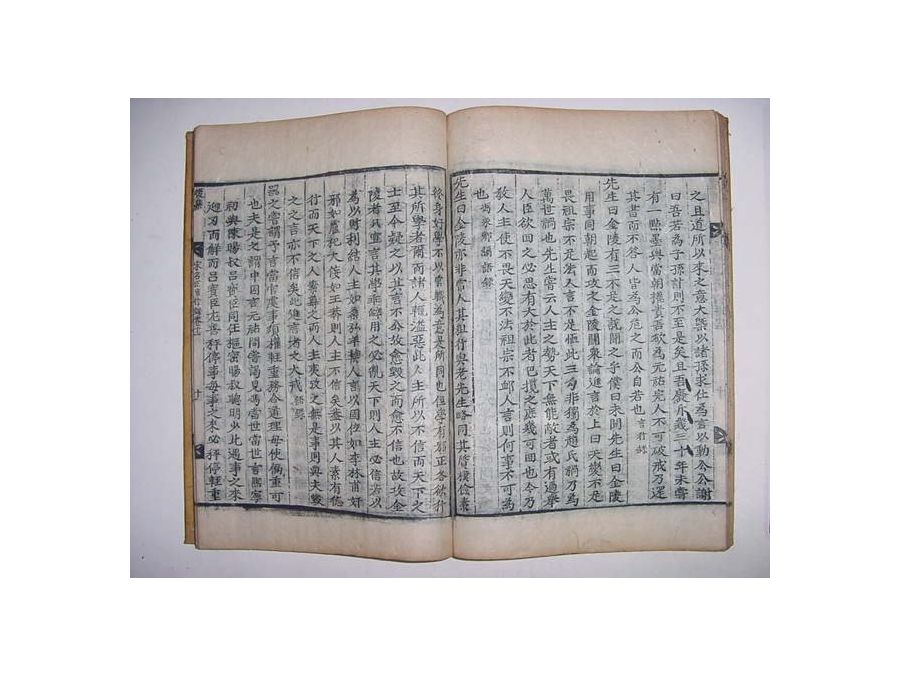 之且道所以來之意大槩以諸孫求仕爲言以動公公謝
曰吾若爲子孫計則不至是矣且吾廢斥幾三十年未嘗
有一點墨與當朝權貴吾欲爲元祐完人不可破戒乃還
其書而不答人皆爲公危之而公自若也 言行錄
先生曰金陵有三不足之說聞之乎僕曰未聞先生曰金陵
用事同朝起而攻之金陵闢衆論進言於上曰天變不足
畏祖宗不足法人言不足恤此三句非獨爲趙氏禍乃爲
萬世禍也先生嘗云人主之勢天下無能敵者或有過舉
人臣欲回之必思有大於此者巴攬之庶幾可回也今乃
敎人主使不畏天變不法祖宗不䘏人言則何事不可爲
也 馬永卿編語錄
先生曰金陵亦非常人其與行與老先生略同其質樸儉素
終身好學不以官職爲意是所同也但學有邪正各欲行
其所學者爾而諸人輒溢惡此人主所以不信而天下之
士至今疑之以其言不公故愈毀之而愈不信也故攻金
陵者只宜言其學乖僻用之必亂天下則人主必信若以
爲以財利結人主如桑弘羊禁人言以固位如李林甫奸
邪如盧杞大佞如王莽則人主不信矣蓋以其人素有德
行而天下之人素尊之而人主夷攷之無是事則與夫毀
之之言亦不信矣此進言者之大戒 語錄
器之嘗謂予言當官處事須權輕重務合道理毋使偏重可
也夫是之謂中因言元祐間嘗謁見馮當世當世言熙寧
初與陳暘叔呂寶臣同任樞密暘叔聰明少比遇事之來
迎刃而解而呂寶臣尤善秤停事每事之來必秤停輕重
後集
宋名臣言行錄卷十二
十